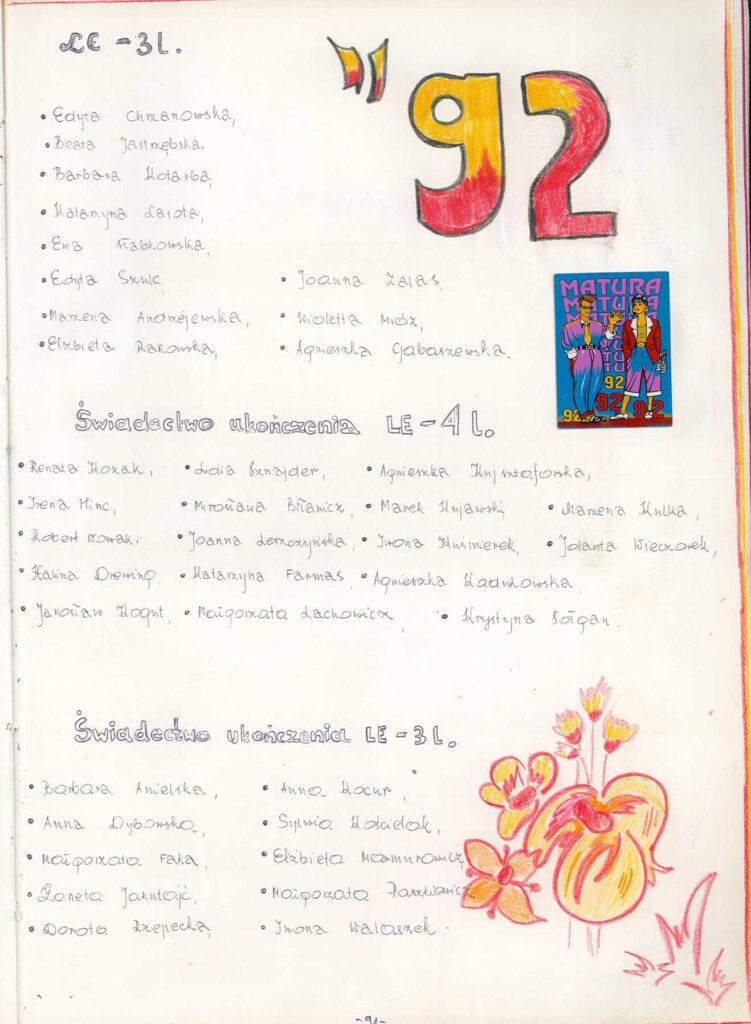 LE - 3 l.
'92
• Edyta Chrzanowska,
• Beata Jastrzębska,
• Barbara Kotarba,
• Katarzyna Lasota,
• Ewa Słabkowska,
• Edyta Szulc,
• Joanna Zalas,
• Marzena Andrzejewska,
• Wioletta Mróz,
• Elżbieta Rakowska,
• Agnieszka Gabaszewska.
MATURA
MATURA
MATURA
92
92 92 92
Świadectwo ukończenia LE - 4 l.
• Renata Kozak, • Lidia Sznajder, • Agnieszka Krysztaforska,
• Irena Hinc, • Mirosława Biłanicz, • Marek Kujawski • Marzena Kulka,
• Robert Nowak, • Joanna Leszczyńska, • Iwona Kuśmierek, • Jolanta Wieczorek,
• Halina Drewing, • Katarzyna Farmas, • Agnieszka Kadukowska,
• Jarosław Kogut, • Małgorzata Lachowicz, • Krystyna Sołgan.
Świadectwo ukończenia LE - 3 l.
• Barbara Anielska, • Anna Kocur,
• Anna Dybowska, • Sylwia Kościelak,
• Małgorzata Faka, • Elżbieta Marmurowicz,
• Żaneta Jakutajć, • Małgorzata Paszkiewicz,
• Dorota Rzepecka, • Iwona Walaszek.
- 91 -